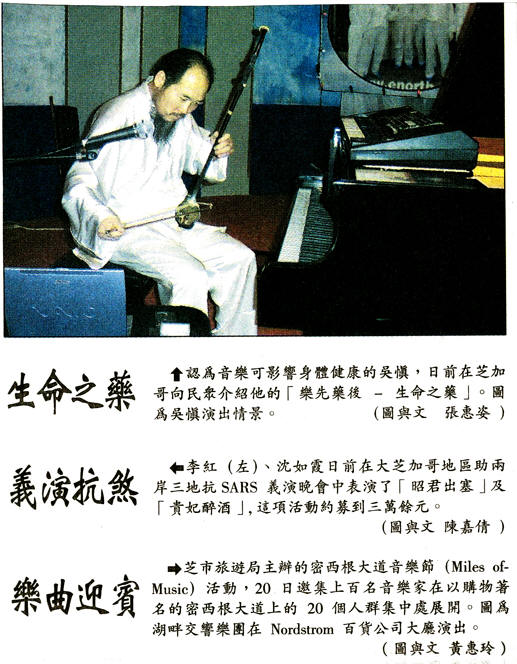 .enorth
生命之藥
⬆認爲音樂可影響身體健康的吳慎，日前在芝加
哥向民衆介紹他的「樂先藥後 – 生命之藥」。圖
爲吳慎演出情景。 (圖與文 張惠姿 )
義演抗煞
⬅李紅 (左)、沈如霞日前在大芝加哥地區助兩
岸三地抗SARS 義演晚會中表演了「昭君出塞」及
「貴妃醉酒」, 這項活動約募到三萬餘元。
(圖與文 陳嘉倩 )
樂曲迎賓
➡芝市旅遊局主辦的密西根大道音樂節 (Miles of-
Music) 活動，20 日邀集上百名音樂家在以購物著
名的密西根大道上的 20 個人群集中處展開。圖爲
湖畔交響樂團在 Nordstrom 百貨公司大廳演出。
( 圖與文 黃惠玲 )